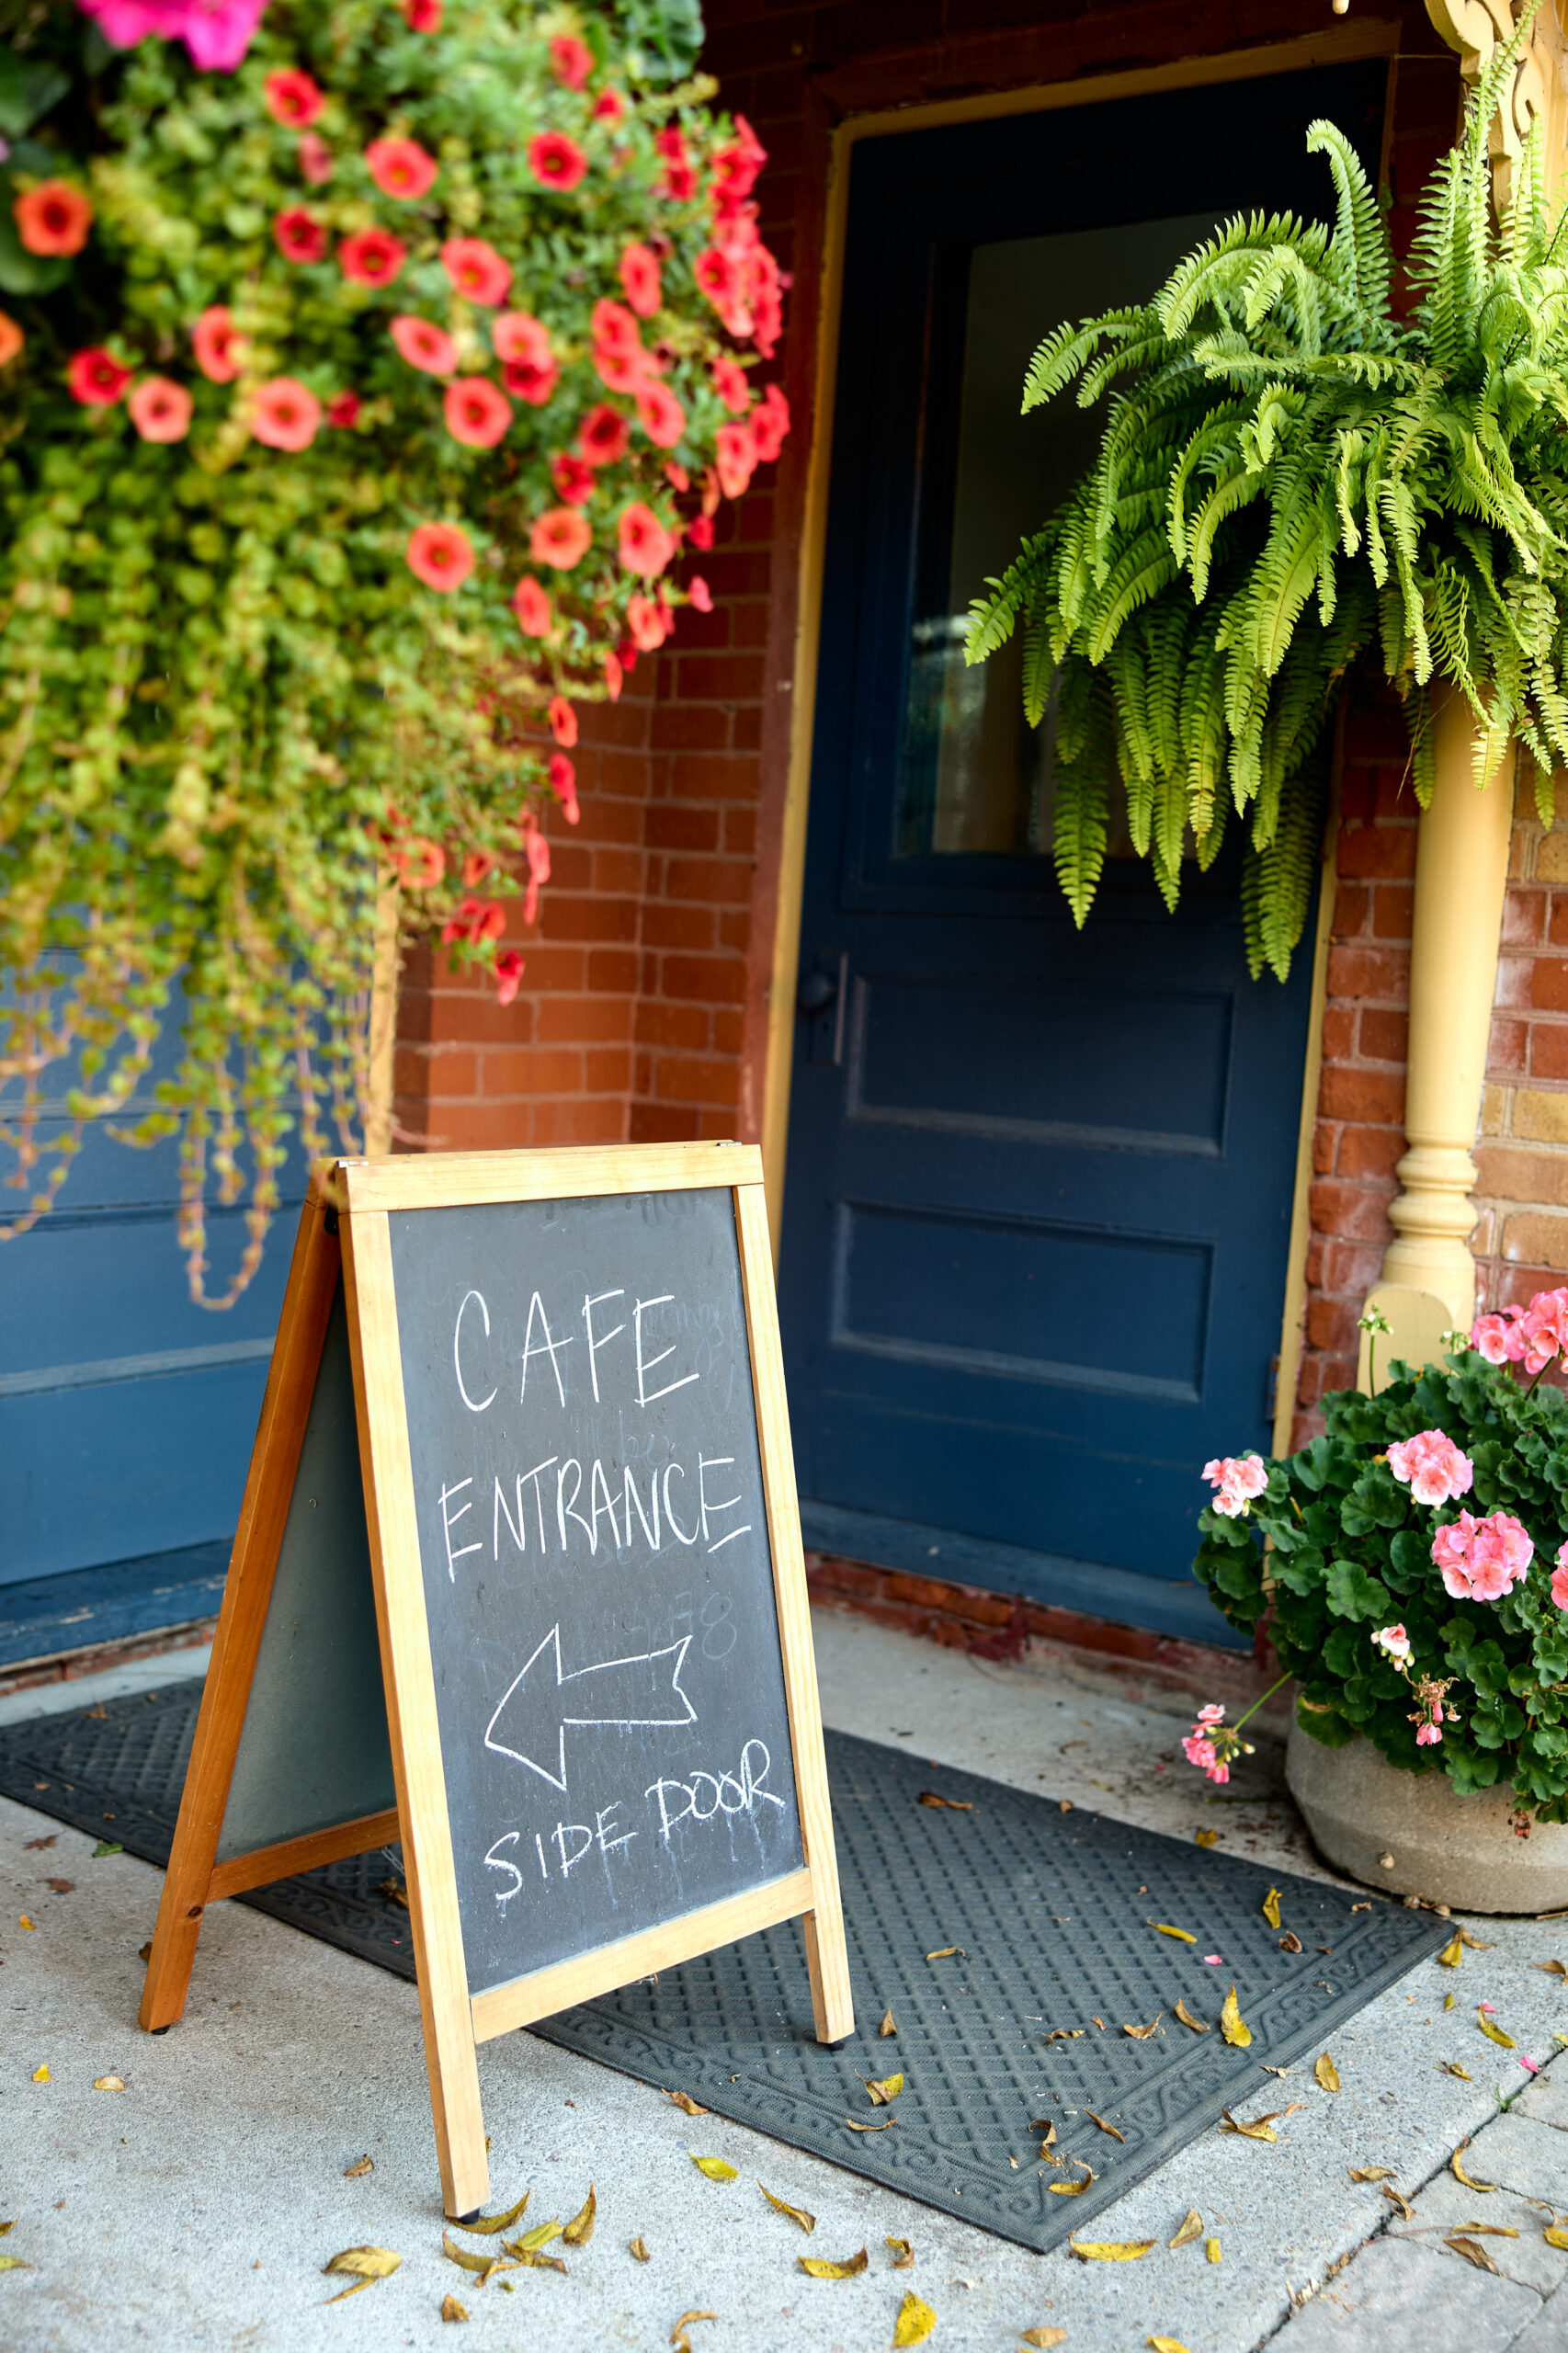 CAFE
ENTRANCE
SIDE DOOR